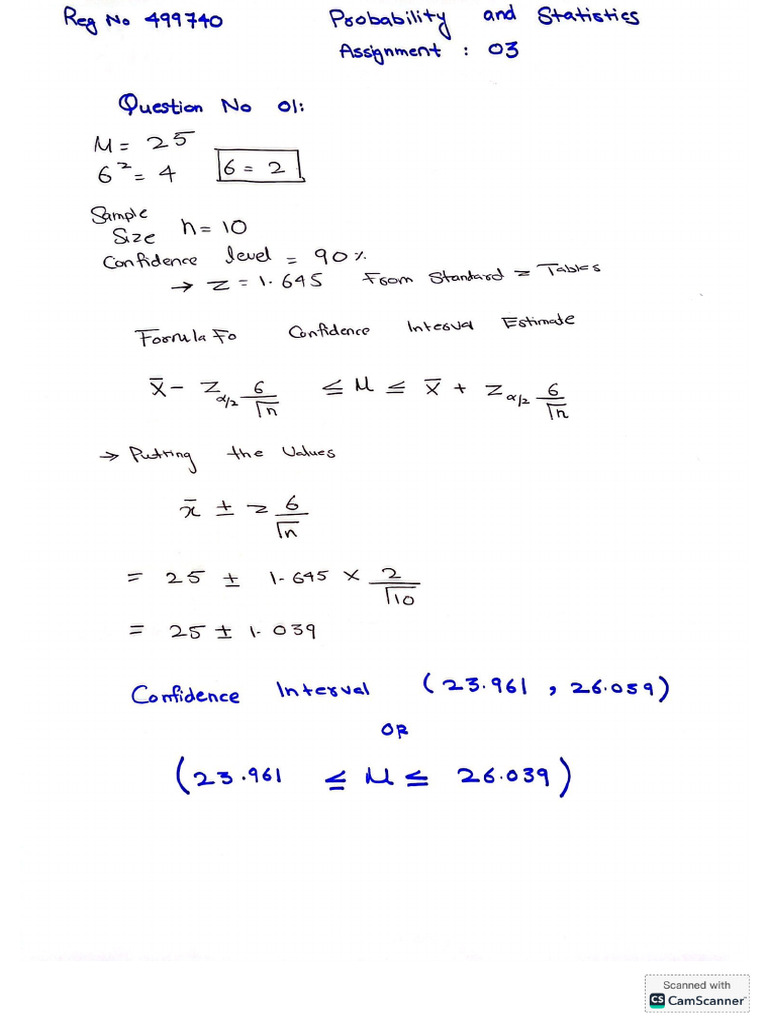 Reg No 499740 Probability and Statistics
Assignment : 03
Question No 01:
M = 25
6² = 4 6 = 2
Sample
Size n = 10
Confidence level = 90%
→ Z = 1.645 From Standard Z Tables
Formula Fo Confidence Interval Estimate
X̄ - Z α/2 6/√n ≤ M ≤ X̄ + Z α/2 6/√n
→ Putting the Values
x̄ ± z 6/√n
= 25 ± 1.645 × 2/√10
= 25 ± 1.039
Confidence Interval (23.961 , 26.039)
OR
(23.961 ≤ M ≤ 26.039)
Scanned with
CS CamScanner